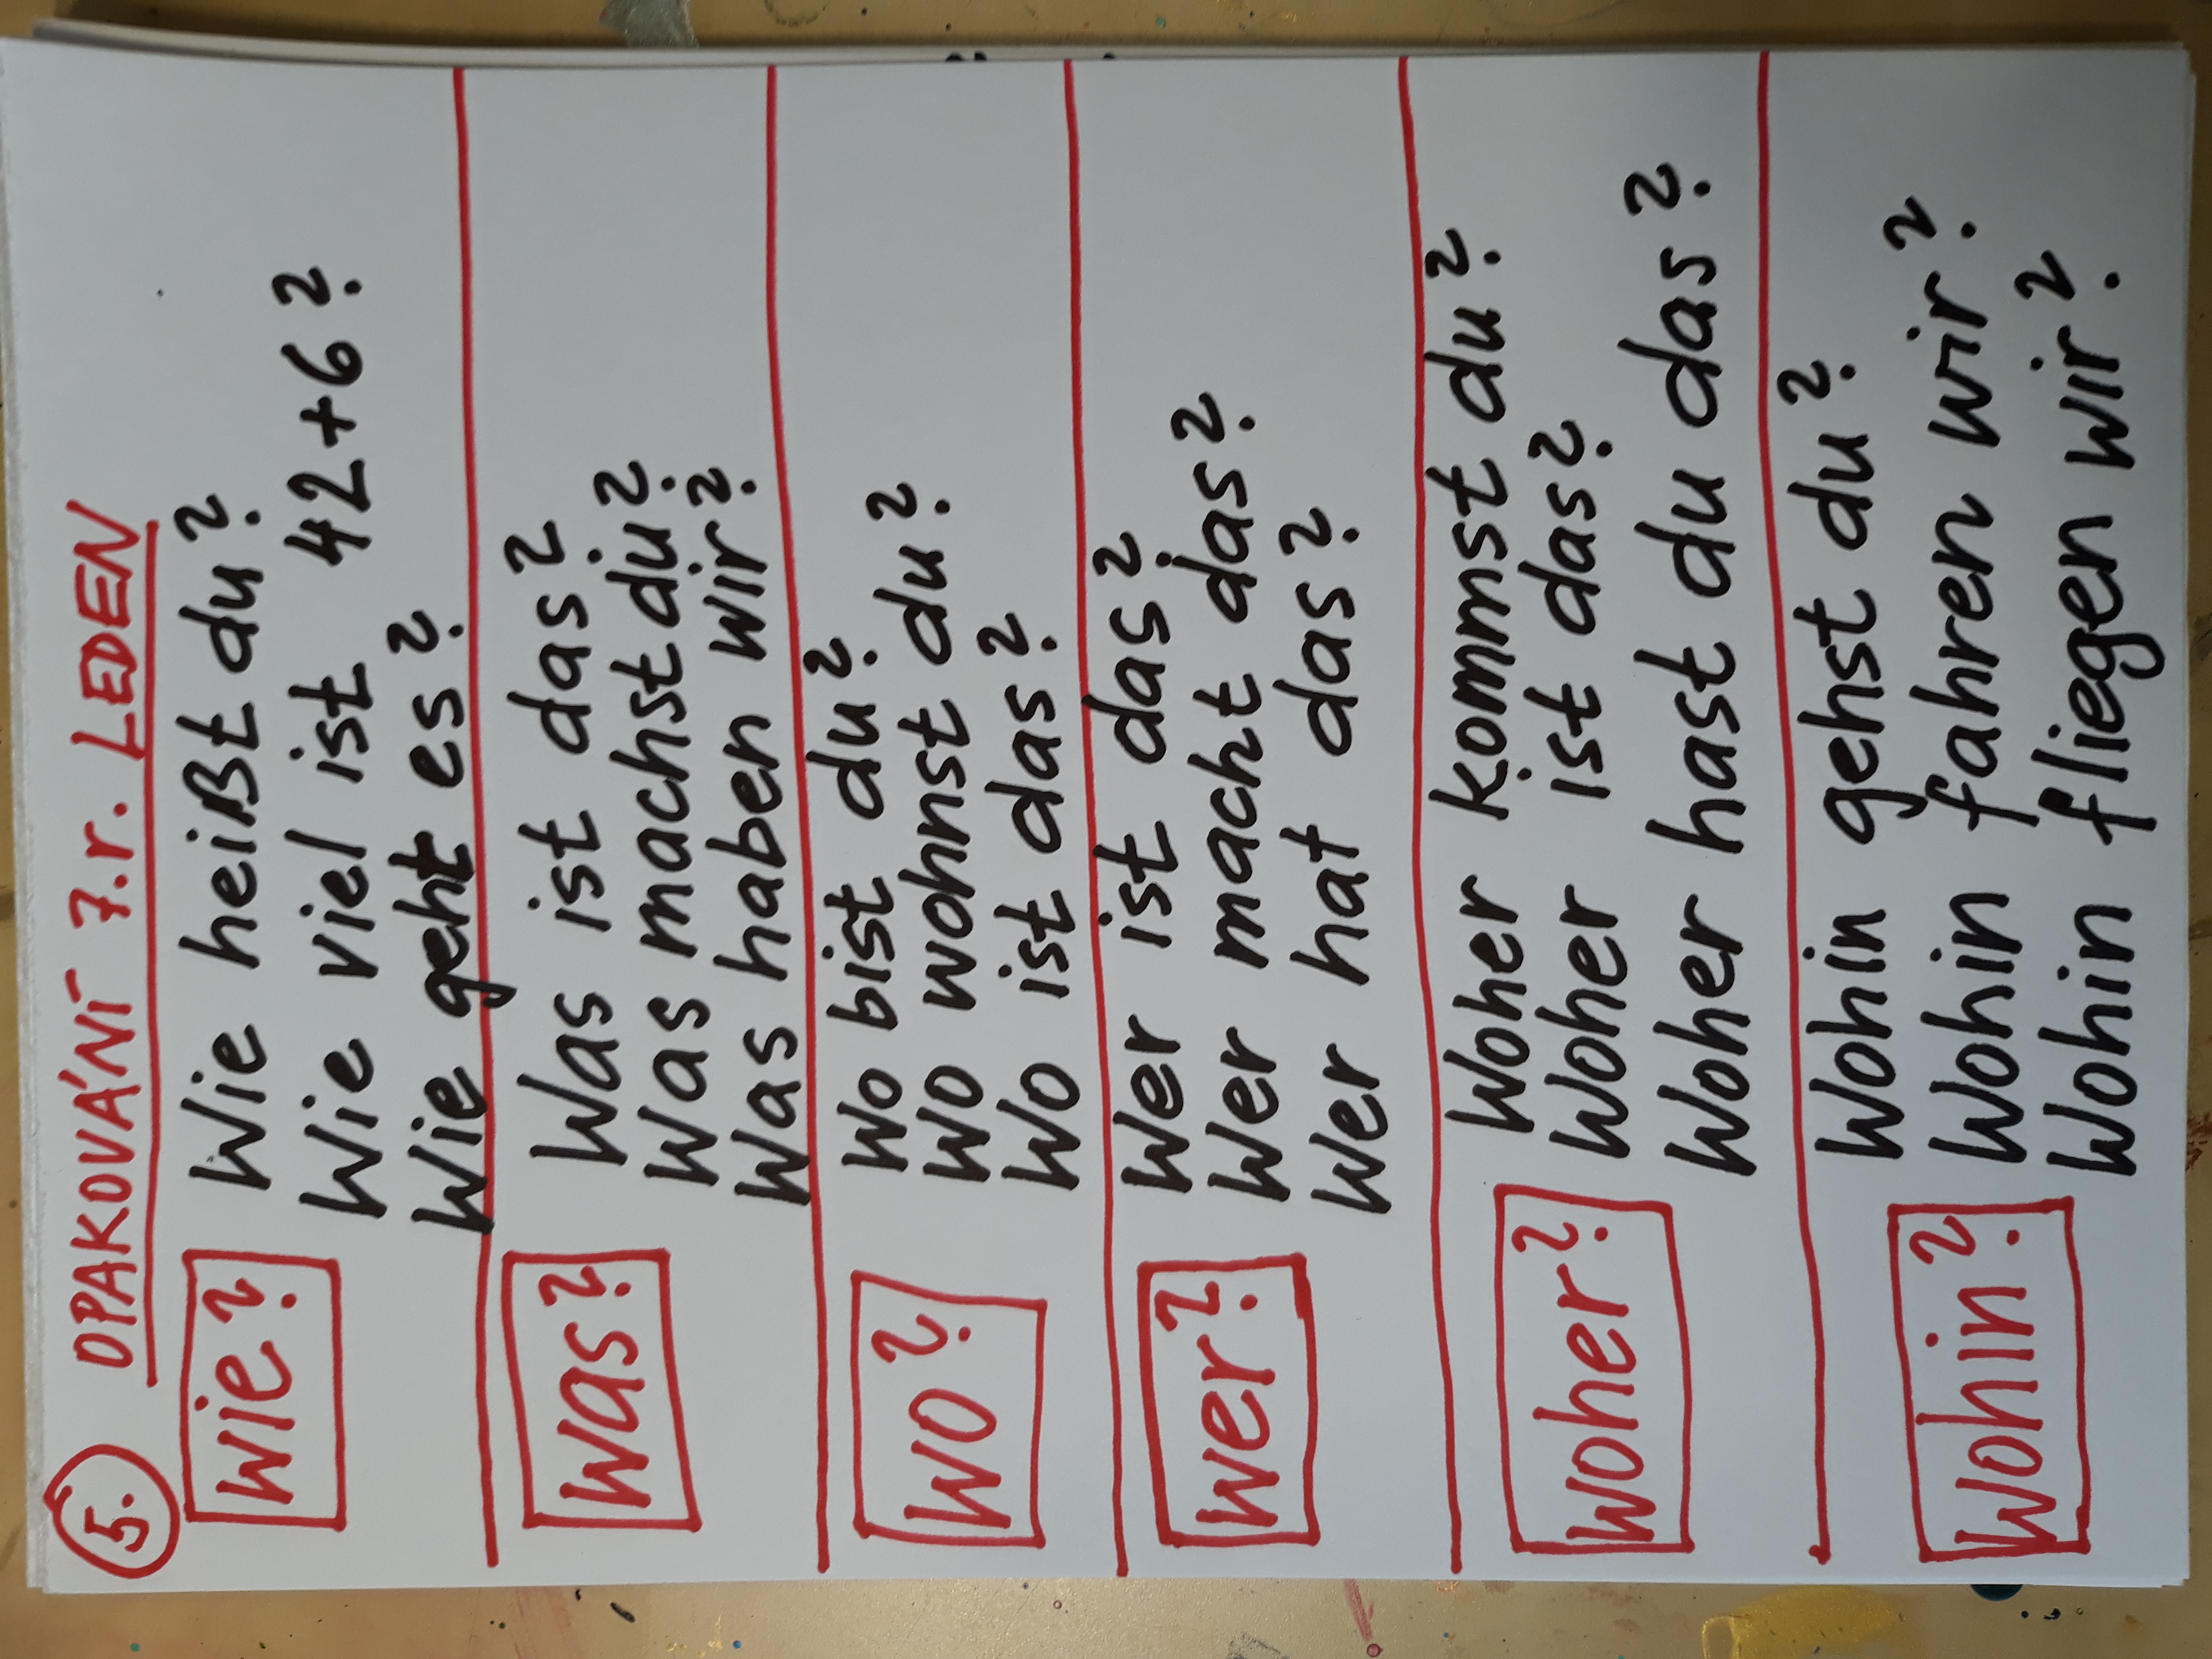 5. OPAKOVÁNÍ 7.r. LEDEN
Wie?
Wie heißt du?
Wie viel ist 42+6?
Wie geht es?
Was?
Was ist das?
Was machst du?
Was haben wir?
Wo?
Wo bist du?
Wo wohnst du?
Wo ist das?
Wer?
Wer ist das?
Wer macht das?
Wer hat das?
Woher?
Woher kommst du?
Woher ist das?
Woher hast du das?
Wohin?
Wohin gehst du?
Wohin fahren wir?
Wohin fliegen wir?